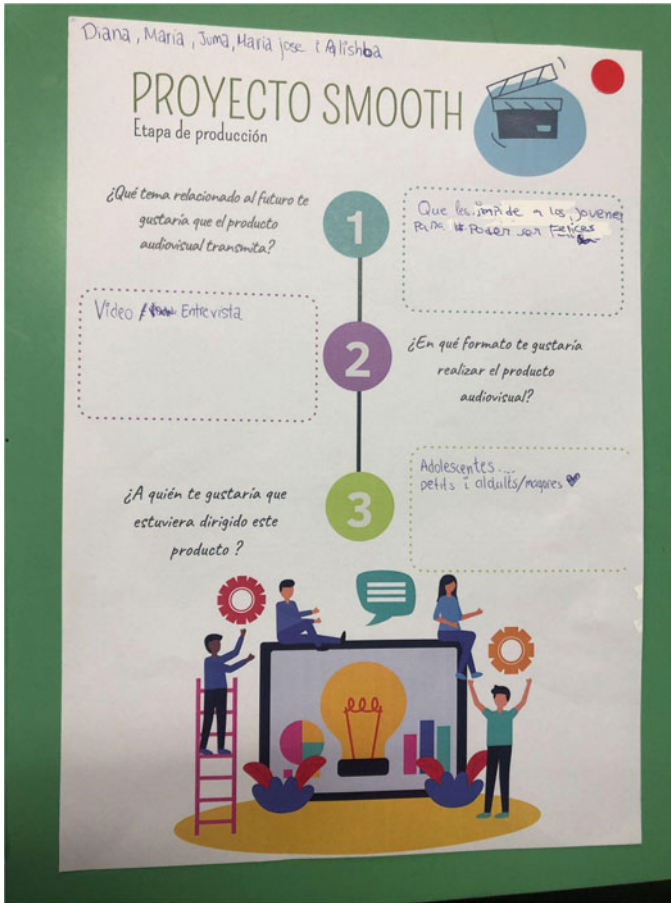 Diana, Maria, Juma, Maria jose i Alishba
PROYECTO SMOOTH
Etapa de producción
¿Qué tema relacionado al futuro te
gustaría que el producto
audiovisual transmita?
1
Que les impide a los jovenes
para poder ser felices
Video / Entrevista
2
¿En qué formato te gustaría
realizar el producto
audiovisual?
¿A quién te gustaría que
estuviera dirigido este
producto ?
3
Adolescentes...
petits i aldults/magores